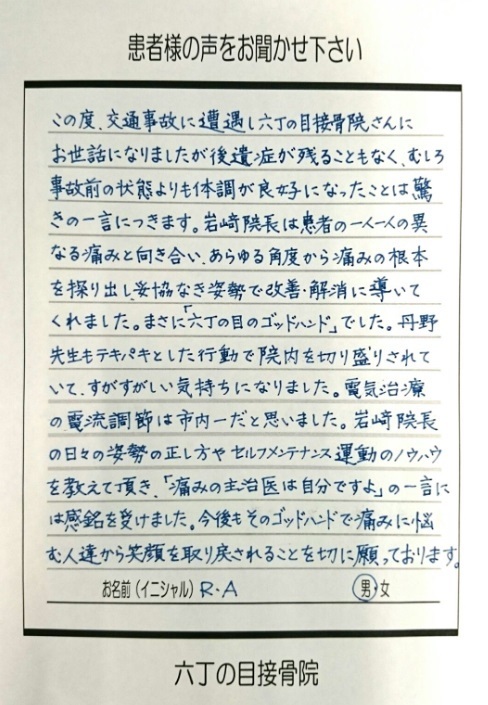 患者様の声をお聞かせ下さい
この度、交通事故に遭遇し六丁の目接骨院さんに
お世話になりましたが後遺症が残ることもなく、むしろ
事故前の状態よりも体調が良好になったことは驚
きの一言につきます。岩﨑院長は患者の一人一人の異
なる痛みと向き合い、あらゆる角度から痛みの根本
を探り出し妥協なき姿勢で改善・解消に導いて
くれました。まさに「六丁の目のゴッドハンド」でした。丹野
先生もテキパキとした行動で院内を切り盛りされて
いて、すがすがしい気持ちになりました。電気治療
の電流調節は市内一だと思いました。岩﨑院長
の日々の姿勢の正し方やセルフメンテナンス運動のノウハウ
を教えて頂き、「痛みの主治医は自分ですよ」の一言に
は感銘を受けました。今後もそのゴッドハンドで痛みに悩
む人達から笑顔を取り戻されることを切に願っております。
お名前（イニシャル） R・A 男・女
六丁の目接骨院